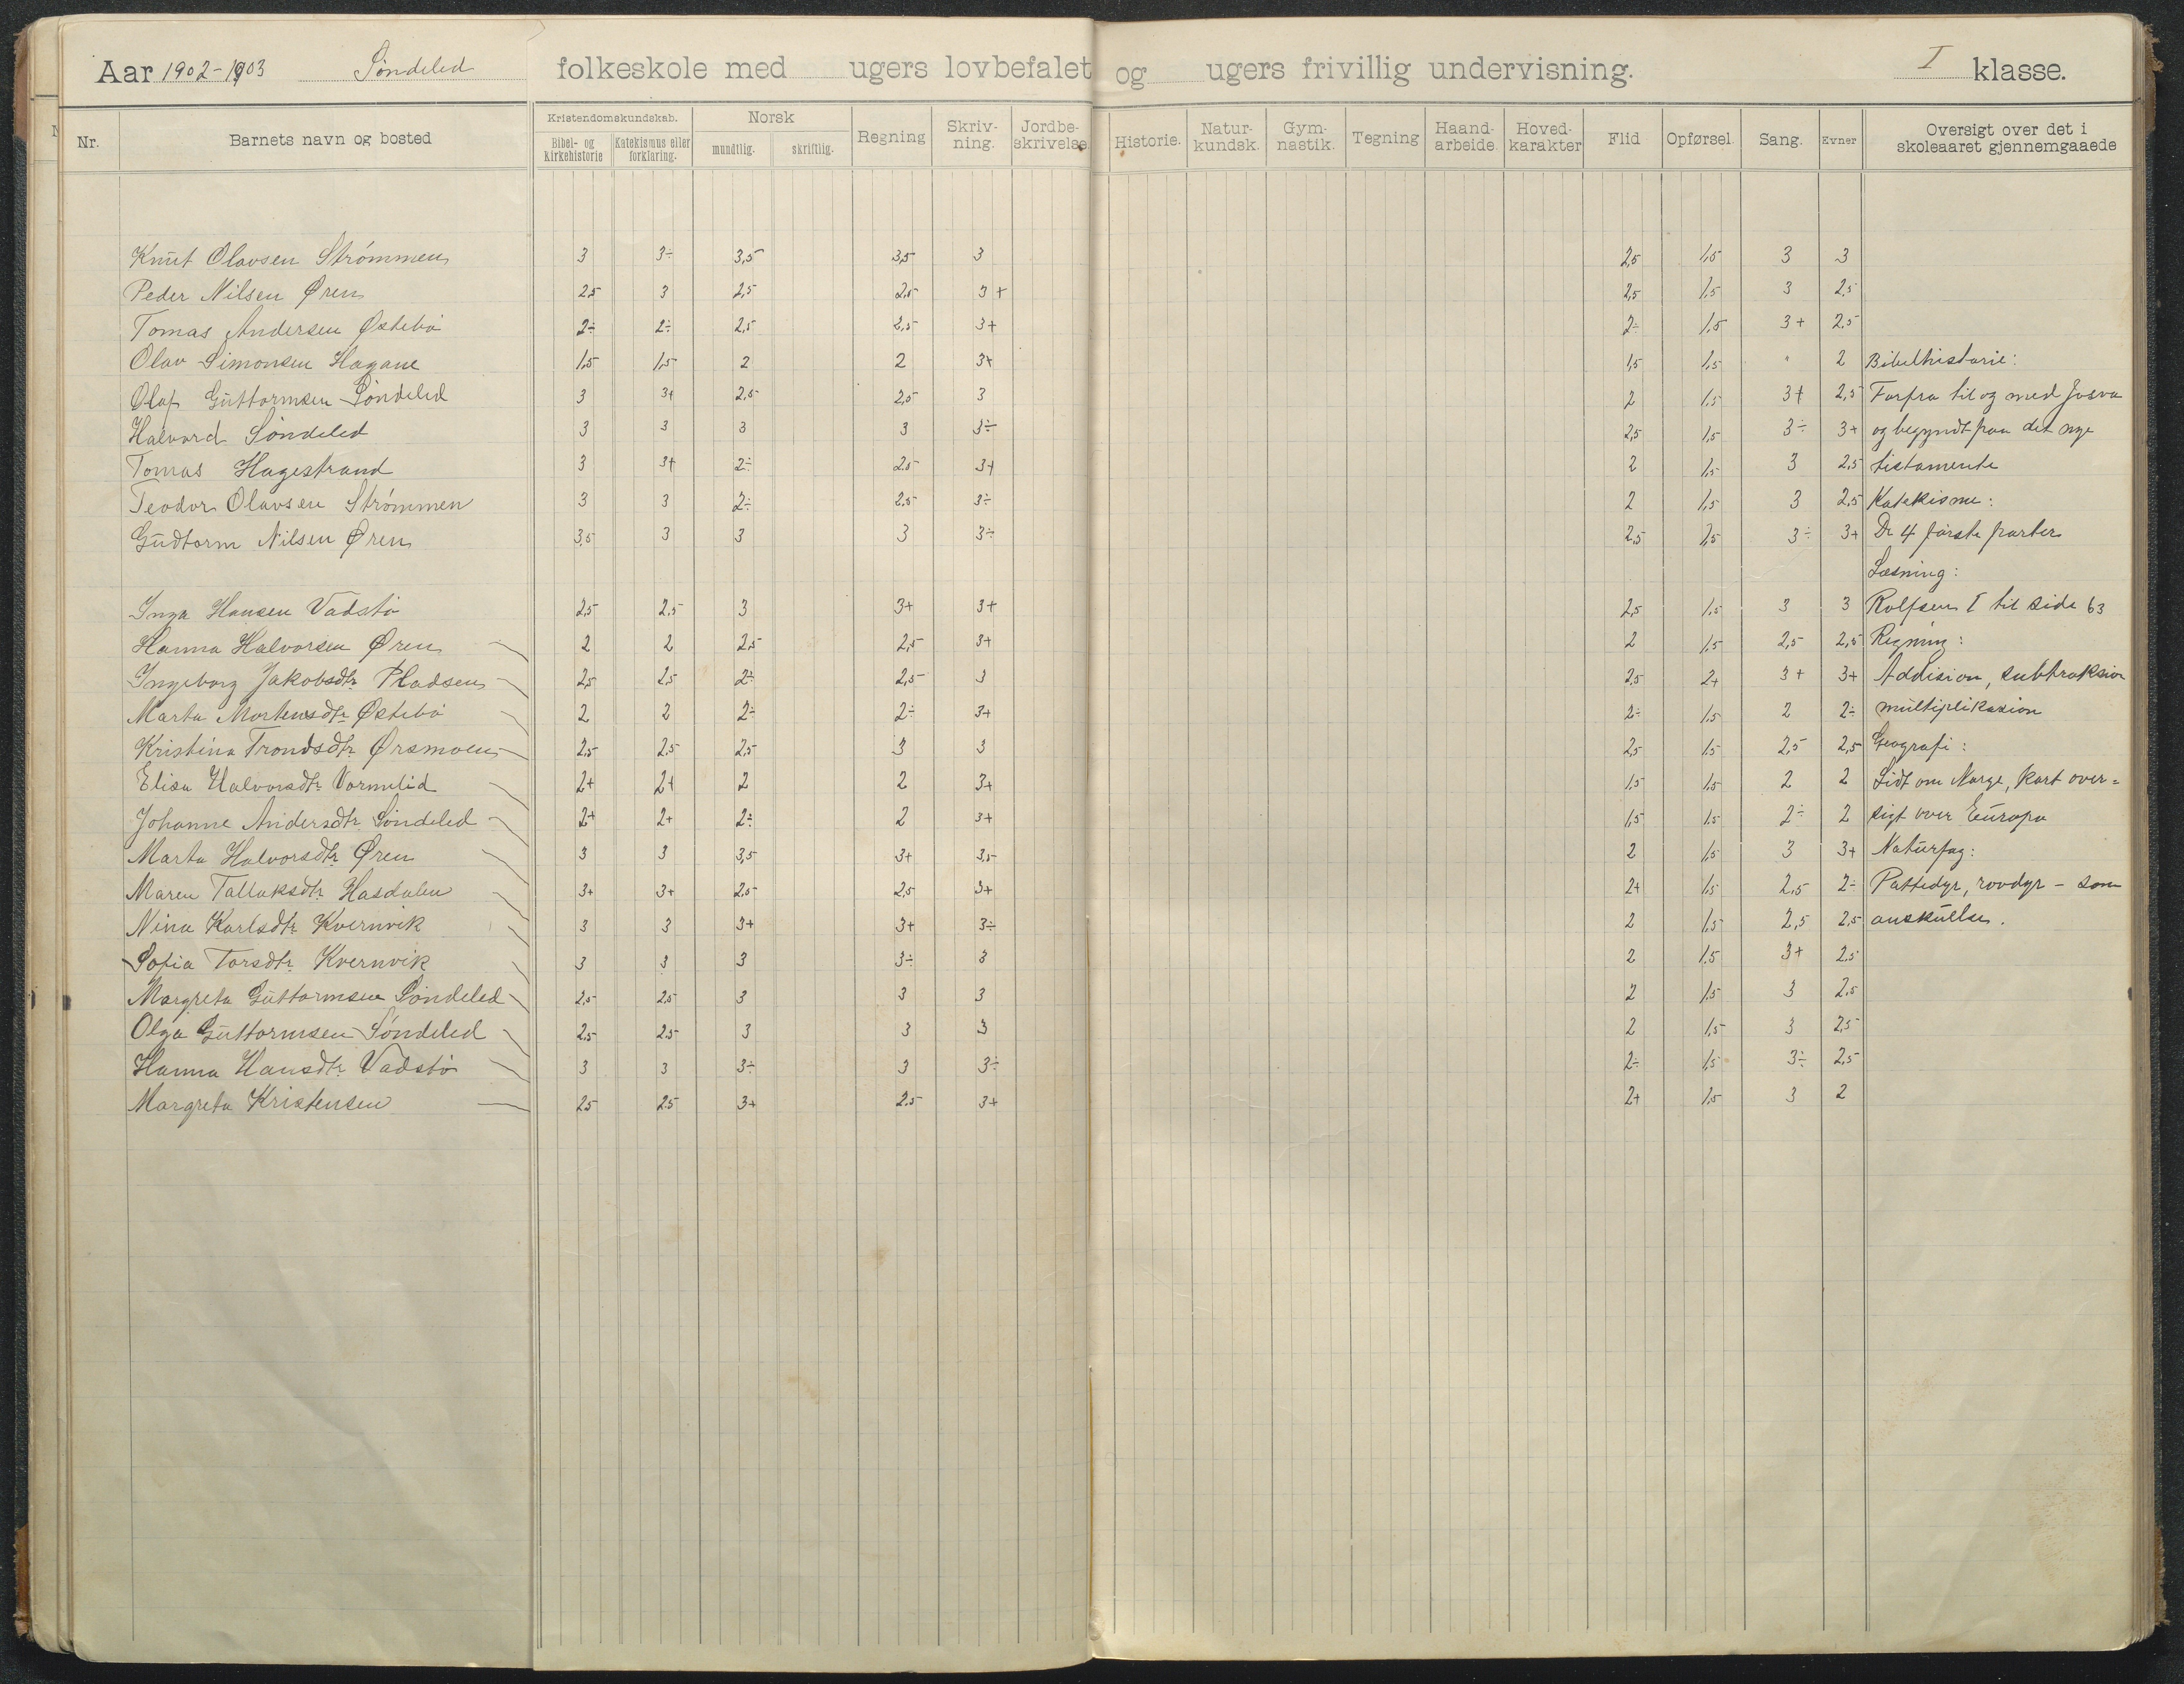 Aar 1902-1903 Søndeled folkeskole med ugers lovbefalet og ugers frivillig undervisning. I klasse.
Nr. Barnets navn og bosted Kristendomskundskab. Bibel- og kirkehistorie Katekismus eller forklaring. Norsk mundtlig. skriftlig. Regning Skriv-ning. Jordbe-skrivelse Historie. Natur-kundsk. Gym-nastik. Tegning Haand-arbeide. Hoved-karakter Flid Opførsel. Sang. Evner Oversigt over det i skoleaaret gjennemgaaede
Knut Olavsen Strømmen 3 3÷ 3,5 3,5 3 2,5 1,5 3 3
Peder Nilsen Øren 2,5 3 2,5 2,5 3+ 2,5 1,5 3 2,5
Tomas Andersen Østebø 2÷ 2÷ 2,5 2,5 3+ 2÷ 1,5 3+ 2,5
Olav Simonsen Hagane 1,5 1,5 2 2 3+ 1,5 1,5 " 2 Bibelhistorie:
Olaf Guttormsen Søndeled 3 3+ 2,5 2,5 3 2 1,5 3+ 2,5 Forfra til og med Josva
Halvord Søndeled 3 3 3 3 3÷ 2,5 1,5 3÷ 3+ og begyndt paa det nye
Tomas Hagestrand 3 3+ 2÷ 2,5 3+ 2 1,5 3 2,5 testamente
Teodor Olavsen Strømmen 3 3 2÷ 2,5 3÷ 2 1,5 3 2,5 Katekisme:
Gudtorm Nilsen Øren 3,5 3 3 3 3÷ 2,5 1,5 3÷ 3+ De 4 første parter
Læsning:
Inga Hansen Vadstø 2,5 2,5 3 3+ 3+ 2,5 1,5 3 3 Rolfsen I til side 63
Hanna Halvorsen Øren 2 2 2,5 2,5 3+ 2 1,5 2,5 2,5 Regning:
Ingeborg Jakobsdtr. Pladsen 2,5 2,5 2÷ 2,5 3 2,5 2+ 3+ 3+ Addision, subtraksion
Marta Mortensdtr. Østebø 2 2 2÷ 2÷ 3+ 2÷ 1,5 2 2÷ multiplikasion
Kristina Trondsdtr. Ørsmoen 2,5 2,5 2,5 3 3 2,5 1,5 2,5 2,5 Geografi:
Elisa Halvorsdtr. Vormelid 2+ 2+ 2 2 3+ 1,5 1,5 2 2 Lidt om Norge, kart over=
Johanne Andersdtr. Søndeled 2+ 2+ 2÷ 2 3+ 1,5 1,5 2÷ 2 sigt over Europa
Marta Halvorsdtr. Øren 3 3 3,5 3+ 3,5 2 1,5 3 3+ Naturfag:
Maren Tallaksdtr. Hasdalen 3+ 3+ 2,5 2,5 3+ 2+ 1,5 2,5 2÷ Pattedyr, rovdyr - som
Nina Karlsdtr. Kvernvik 3 3 3+ 3+ 3÷ 2 1,5 2,5 2,5 anskuelse.
Sofia Torsdtr. Kvernvik 3 3 3 3÷ 3 2 1,5 3+ 2,5
Margreta Guttormsen Søndeled 2,5 2,5 3 3 3 2 1,5 3 2,5
Olga Guttormsen Søndeled 2,5 2,5 3 3 3 2 1,5 3 2,5
Hanna Hansdtr. Vadstø 3 3 3÷ 3 3÷ 2÷ 1,5 3÷ 2,5
Margreta Kristensen 2,5 2,5 3+ 2,5 3+ 2+ 1,5 3 2